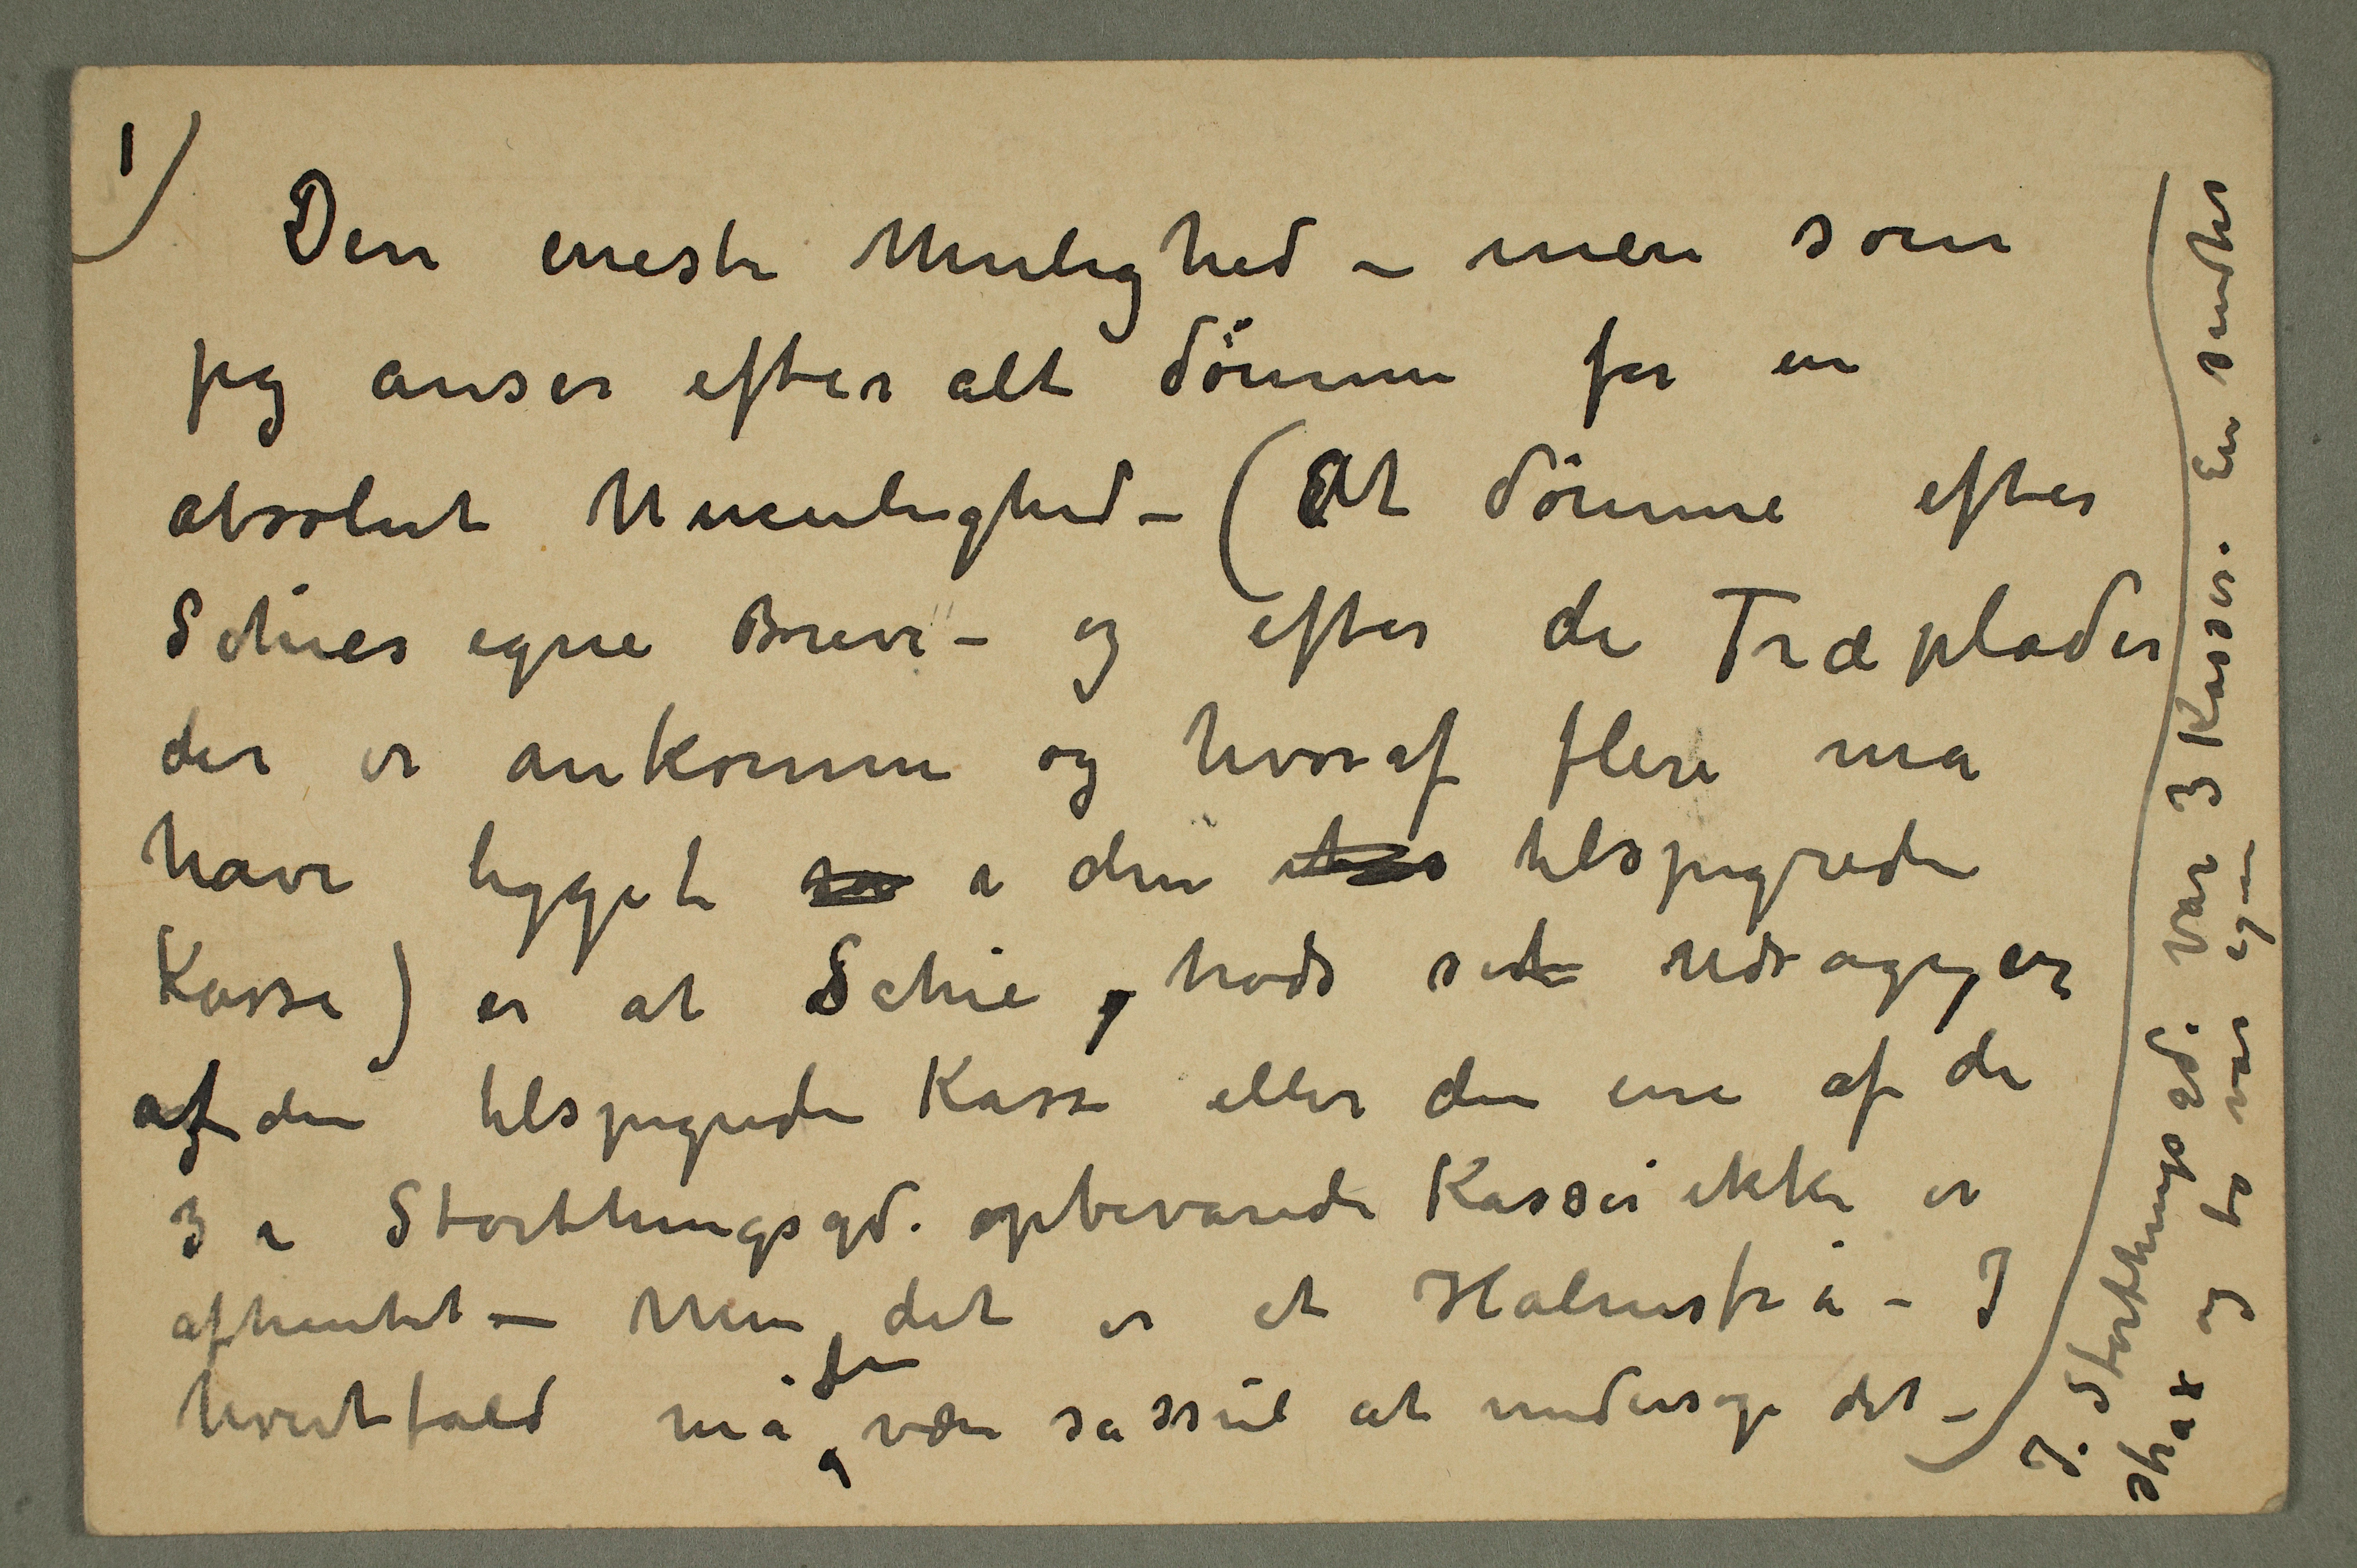 1)
Den eneste Mulighed – men som
jeg anser efter alt dömme for en
absolut Umulighed – (At dömme efter
Schies egne Breve – og efter de Træplader
der er ankomne og hvoraf flere må
have ligget i den tilspigrede
Kasse) er at Schie, trods sit Udsagn, er
af den tilspigrede Kasse eller den ene af de
3 i Storthingsgd. opbevarede Kasser ikke er
afhentet – Men det er et Halmstrå – I
hvertfald må være såssiel at undersøge det –
I. Storthingsgd. var 3 Kasser. En sendtes
strax og to var igjen